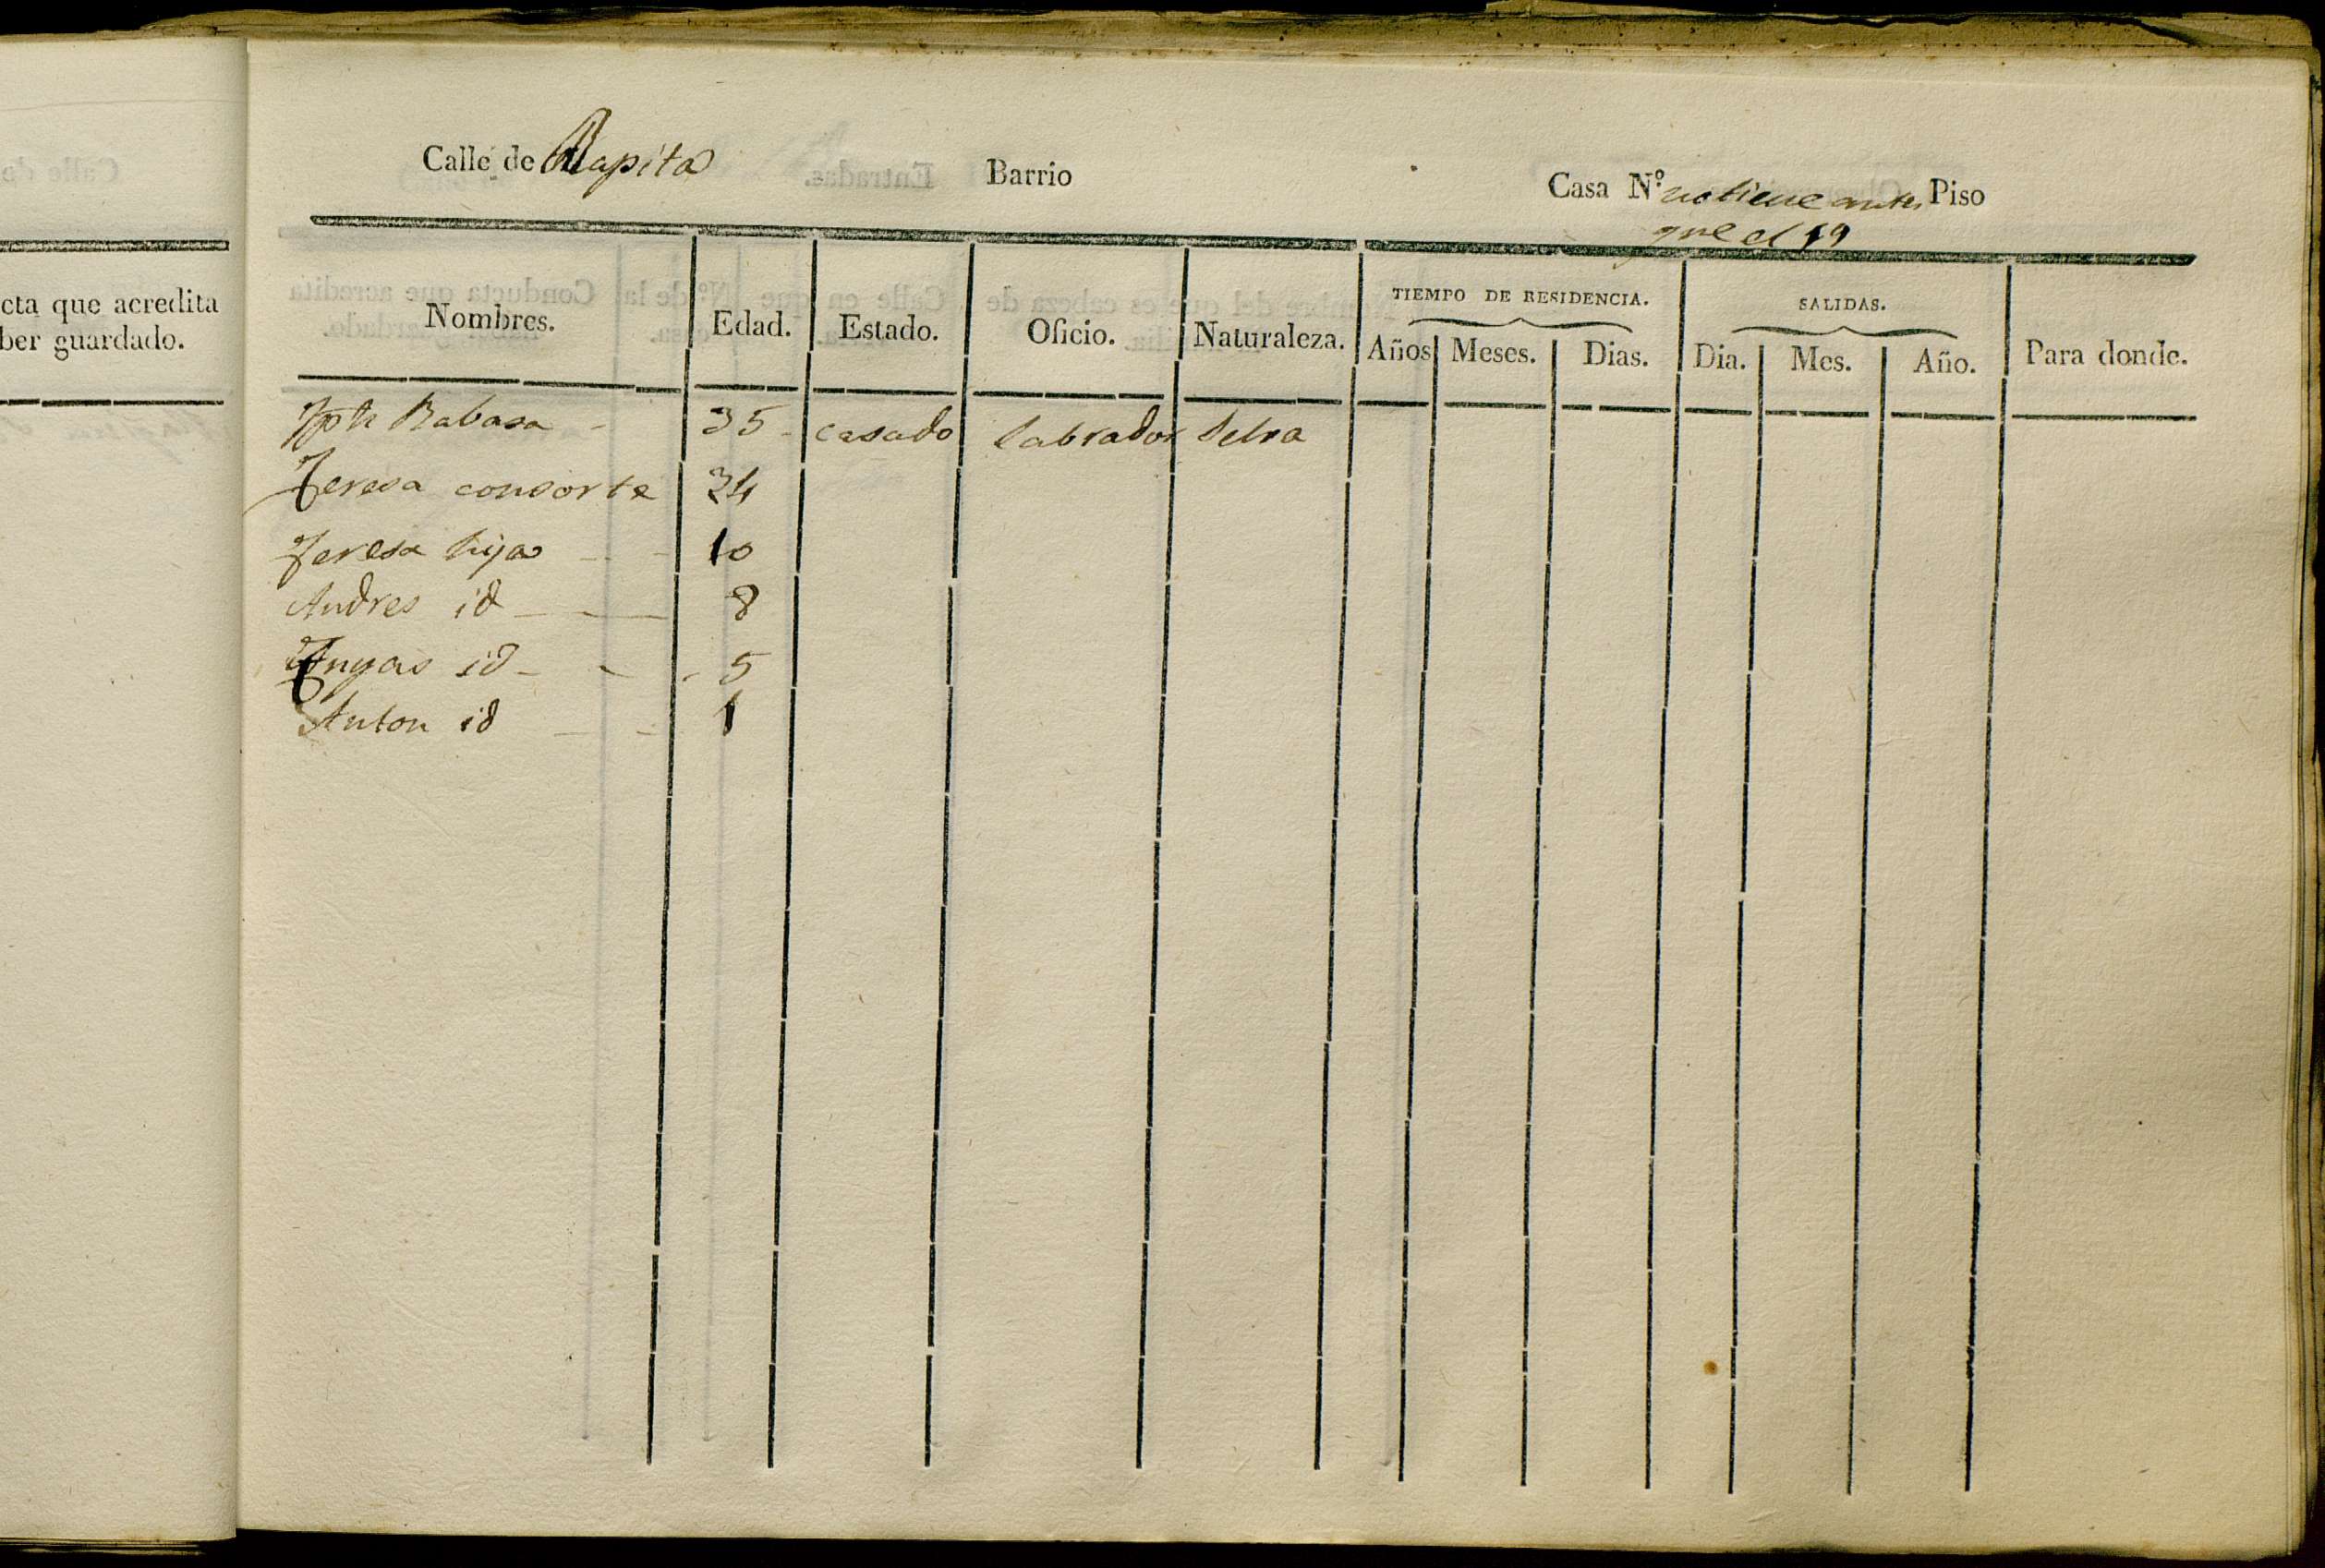 cta que acredita
ber guardado.
Calle de Rapita Barrio Casa N.º no tiene antes Piso
que el 19
Nombres. Edad. Estado. Oficio. Naturaleza. TIEMPO DE RESIDENCIA. SALIDAS. Para donde.
Años Meses. Dias. Dia. Mes. Año.
Jph Rabasa - 35 - casado labrador Selva
Teresa consorte 34
Teresa hija - - 10
Andres id - - - 8
id - - - 5
Anton id - - 1